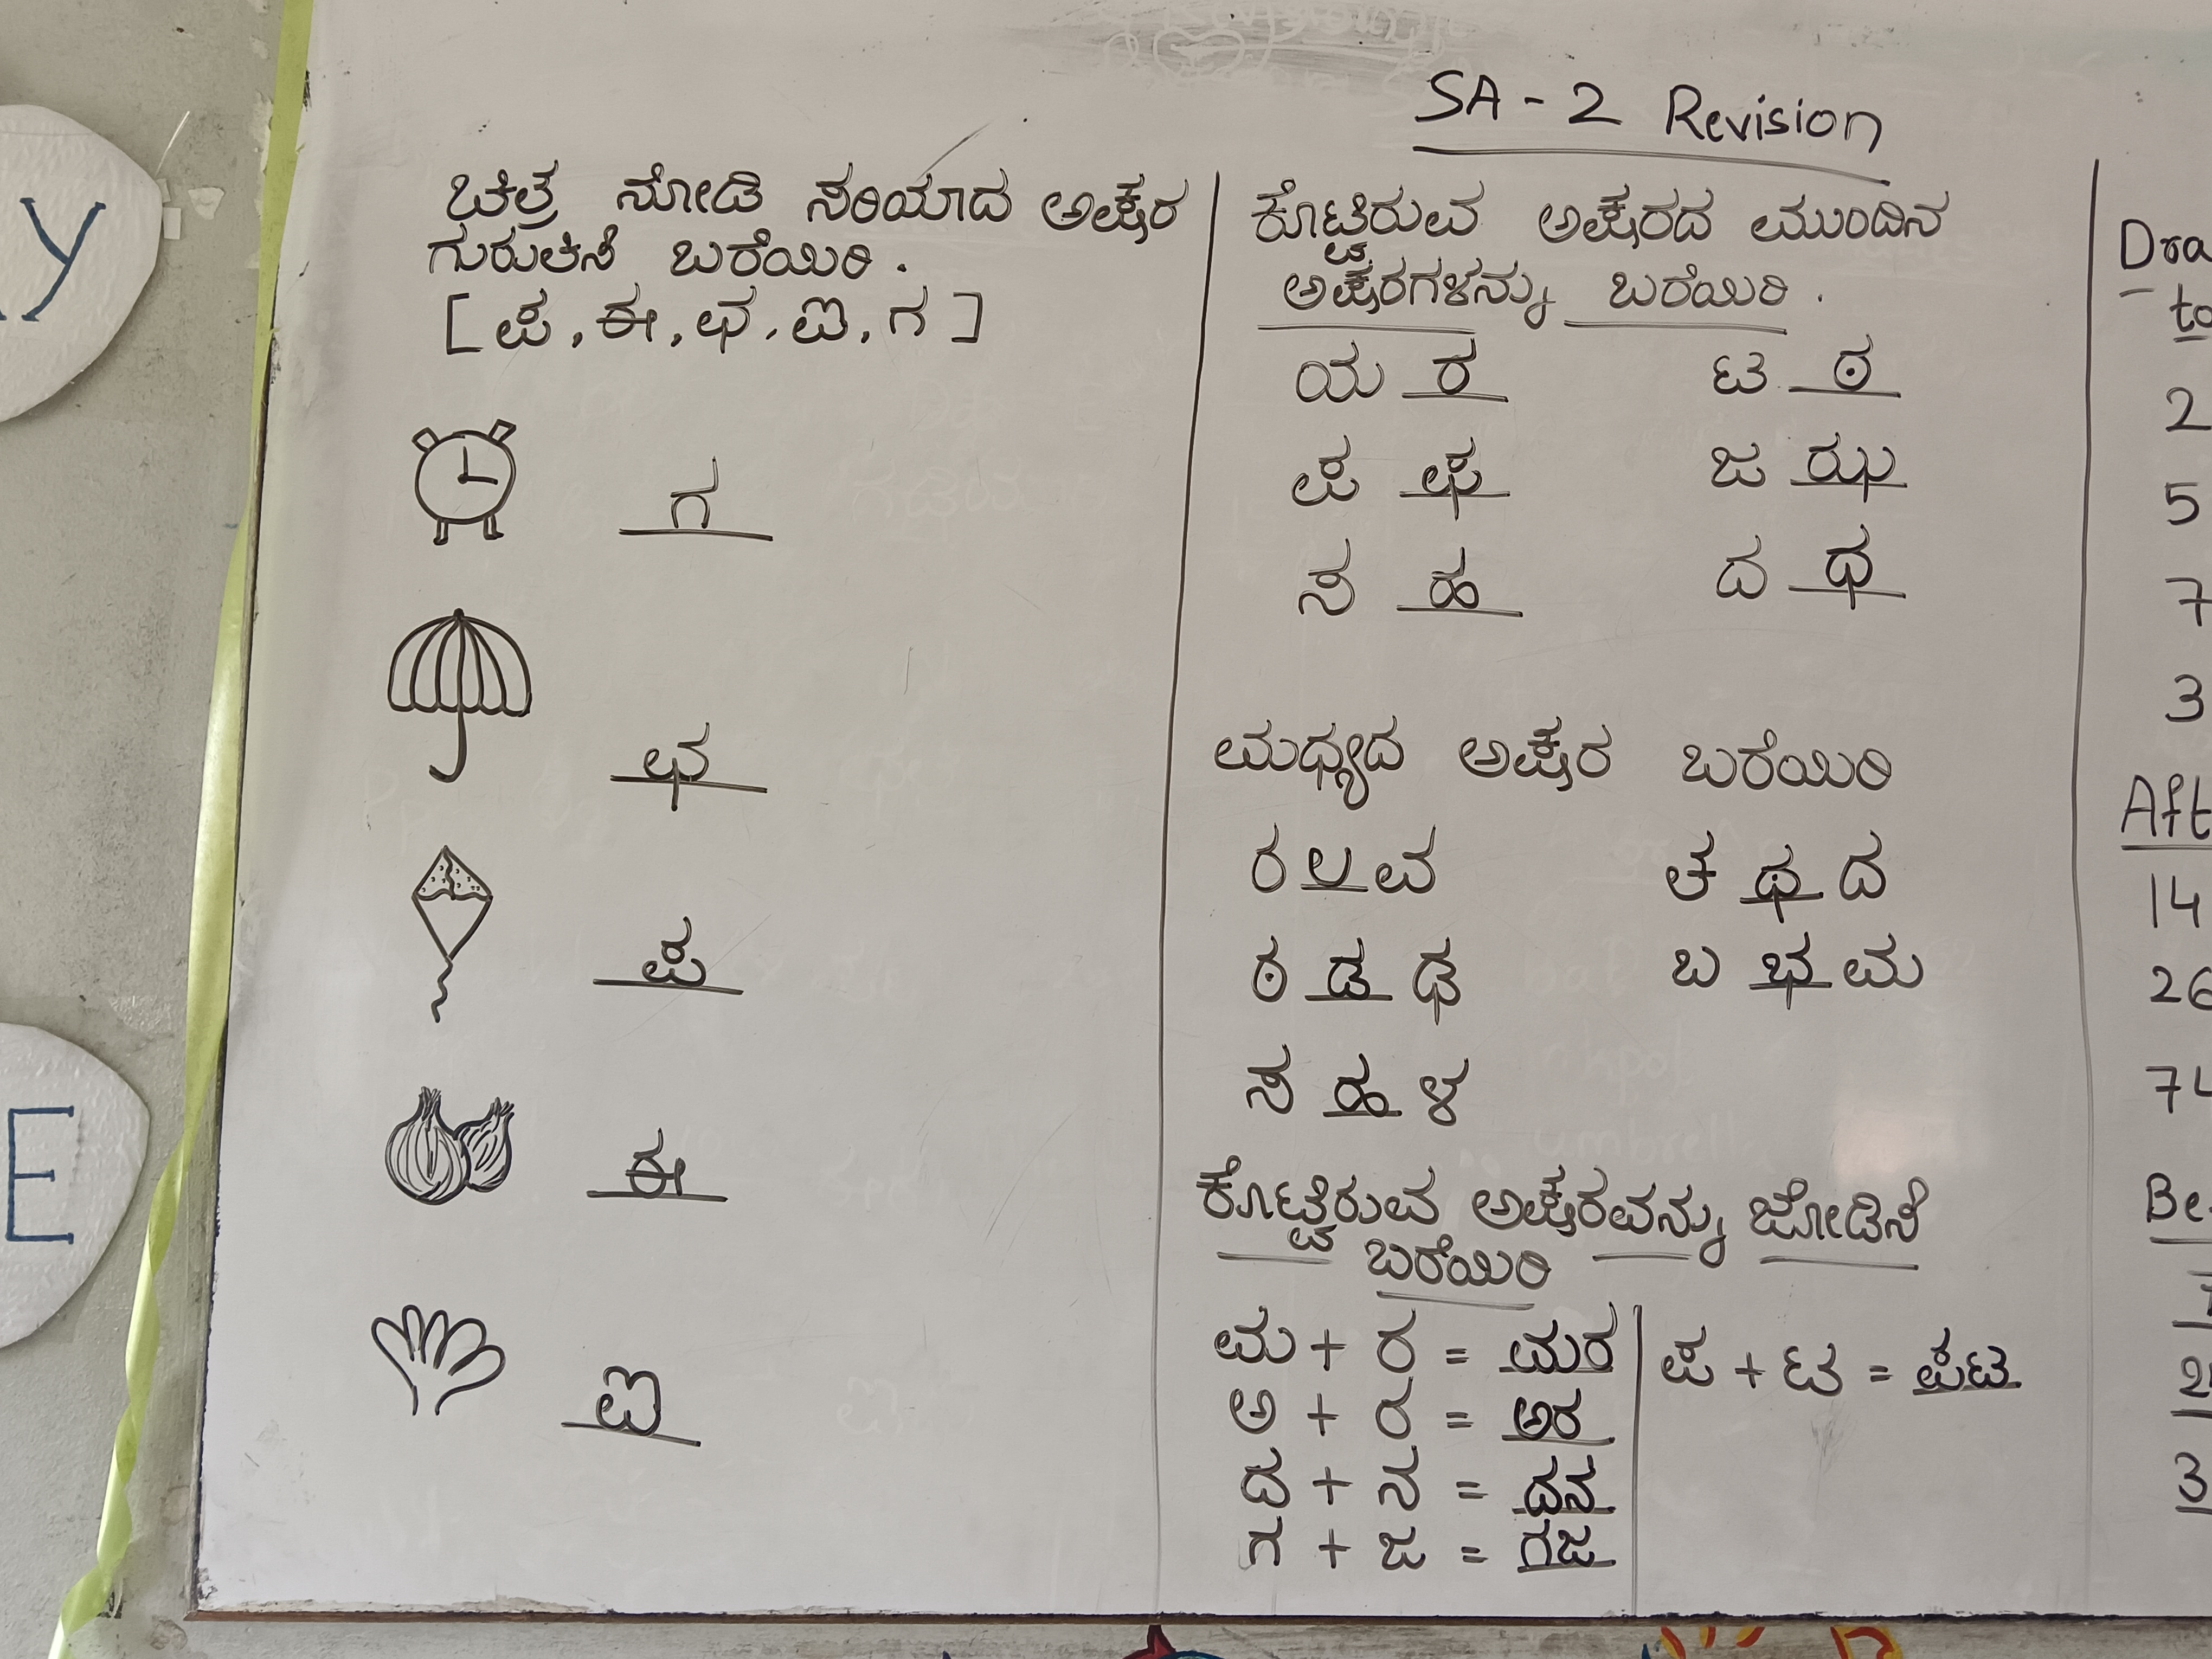 SA - 2 Revision
ಚಿತ್ರ ನೋಡಿ ಸರಿಯಾದ ಅಕ್ಷರ
ಗುರುತಿಸಿ ಬರೆಯಿರಿ.
[ ಪ, ಈ, ಛ, ಐ, ಗ ]
ಗ
ಛ
ಪ
ಈ
ಐ
ಕೊಟ್ಟಿರುವ ಅಕ್ಷರದ ಮುಂದಿನ
ಅಕ್ಷರಗಳನ್ನು ಬರೆಯಿರಿ.
ಯ ರ ಟ ಠ
ಪ ಫ ಜ ಝ
ಸ ಹ ದ ಧ
ಮಧ್ಯದ ಅಕ್ಷರ ಬರೆಯಿರಿ
ರ ಲ ವ ತ ಥ ದ
ಠ ಡ ಢ ಬ ಭ ಮ
ಸ ಹ ಳ
ಕೊಟ್ಟಿರುವ ಅಕ್ಷರವನ್ನು ಜೋಡಿಸಿ
ಬರೆಯಿರಿ
ಮ + ರ = ಮರ ಪ + ಟ = ಪಟ
ಅ + ರ = ಅರ
ದ + ನ = ದನ
ಗ + ಜ = ಗಜ
2
5
7
3
14
Y
E